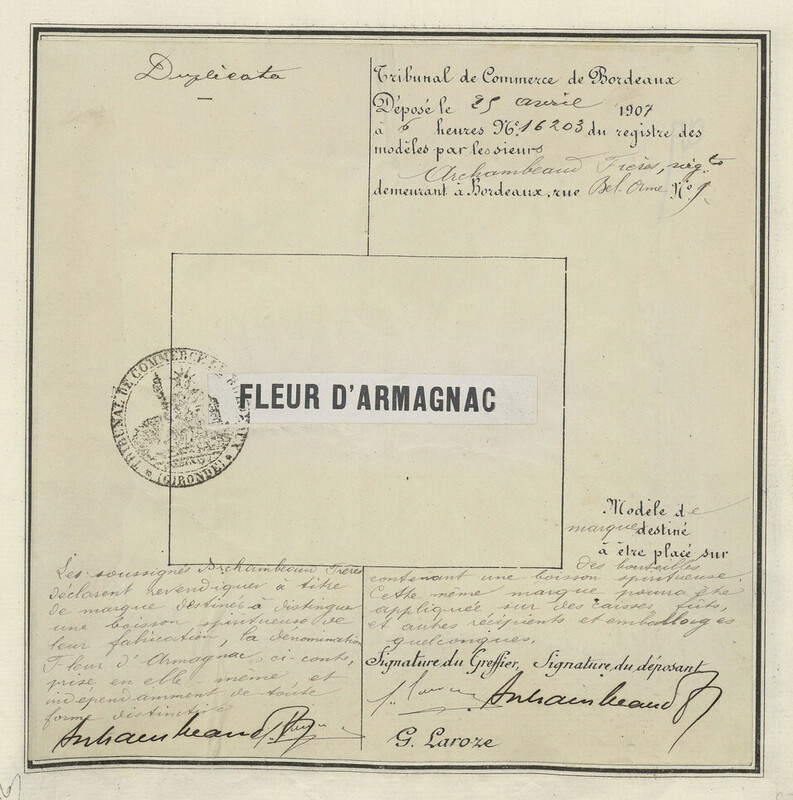 Duplicata
Tribunal de Commerce de Bordeaux
Déposé le 25 avril 1907
à 6 heures No. 16203 du registre des
modèles par les sieurs
Archambeaud Frères, négts
demeurant à Bordeaux, rue Bel-Orme No
TRIBUNAL DE COMMERCE DE BORDEAUX
(GIRONDE)
FLEUR D'ARMAGNAC
Modèle de
marque destiné
à être placé sur
des bouteilles
contenant une boisson spiritueuse.
Cette même marque pourra être
appliquée sur des caisses, fûts,
et autres récipients et emballages
quelconques.
Les soussignés Archambeaud Frères
déclarent revendiquer à titre
de marque destinée à distinguer
une boisson spiritueuse de
leur fabrication, la dénomination
Fleur d'Armagnac, ci-contre,
prise en elle-même, et
indépendamment de toute
forme distinctive
Signature du Greffier, Signature du déposant
Archambeaud
Archambeaud Fres
G. Laroze